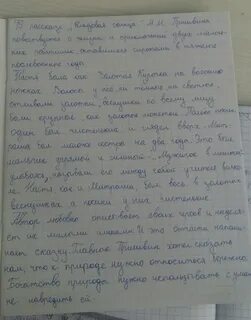 В рассказе "Кладовая солнца" М.М. Пришвина
повествуется о жизни и приключении двух малень-
ких ребятишек, оставшихся сиротами в тяжёлые
послевоенные годы.
Настя была как Золотая Курочка на высоких
ножках. Волосы у неё ни тёмные ни светлые,
отливали золотом, веснушки по всему лицу
были крупные, как золотые монетки. Только носик
один был чистенький и глядел вверх. Мит-
раша был моложе сестры на два года. Это был
мальчик упрямый и сильный. "Мужичок в мешоч-
ке", улыбаясь, называли его между собой учителя в шко-
ле. Настя как и Митраша, был весь в золотых
веснушках, а носик у них чистенькие.
Автор любовно описывает своих героев и наделя-
ет их милыми именами. И это отчасти напоми-
нает сказку. Главное Пришвин хотел сказать
нам, что к природе нужно относиться бережно.
Богатство природы нужно использовать с умом
не навредить ей.